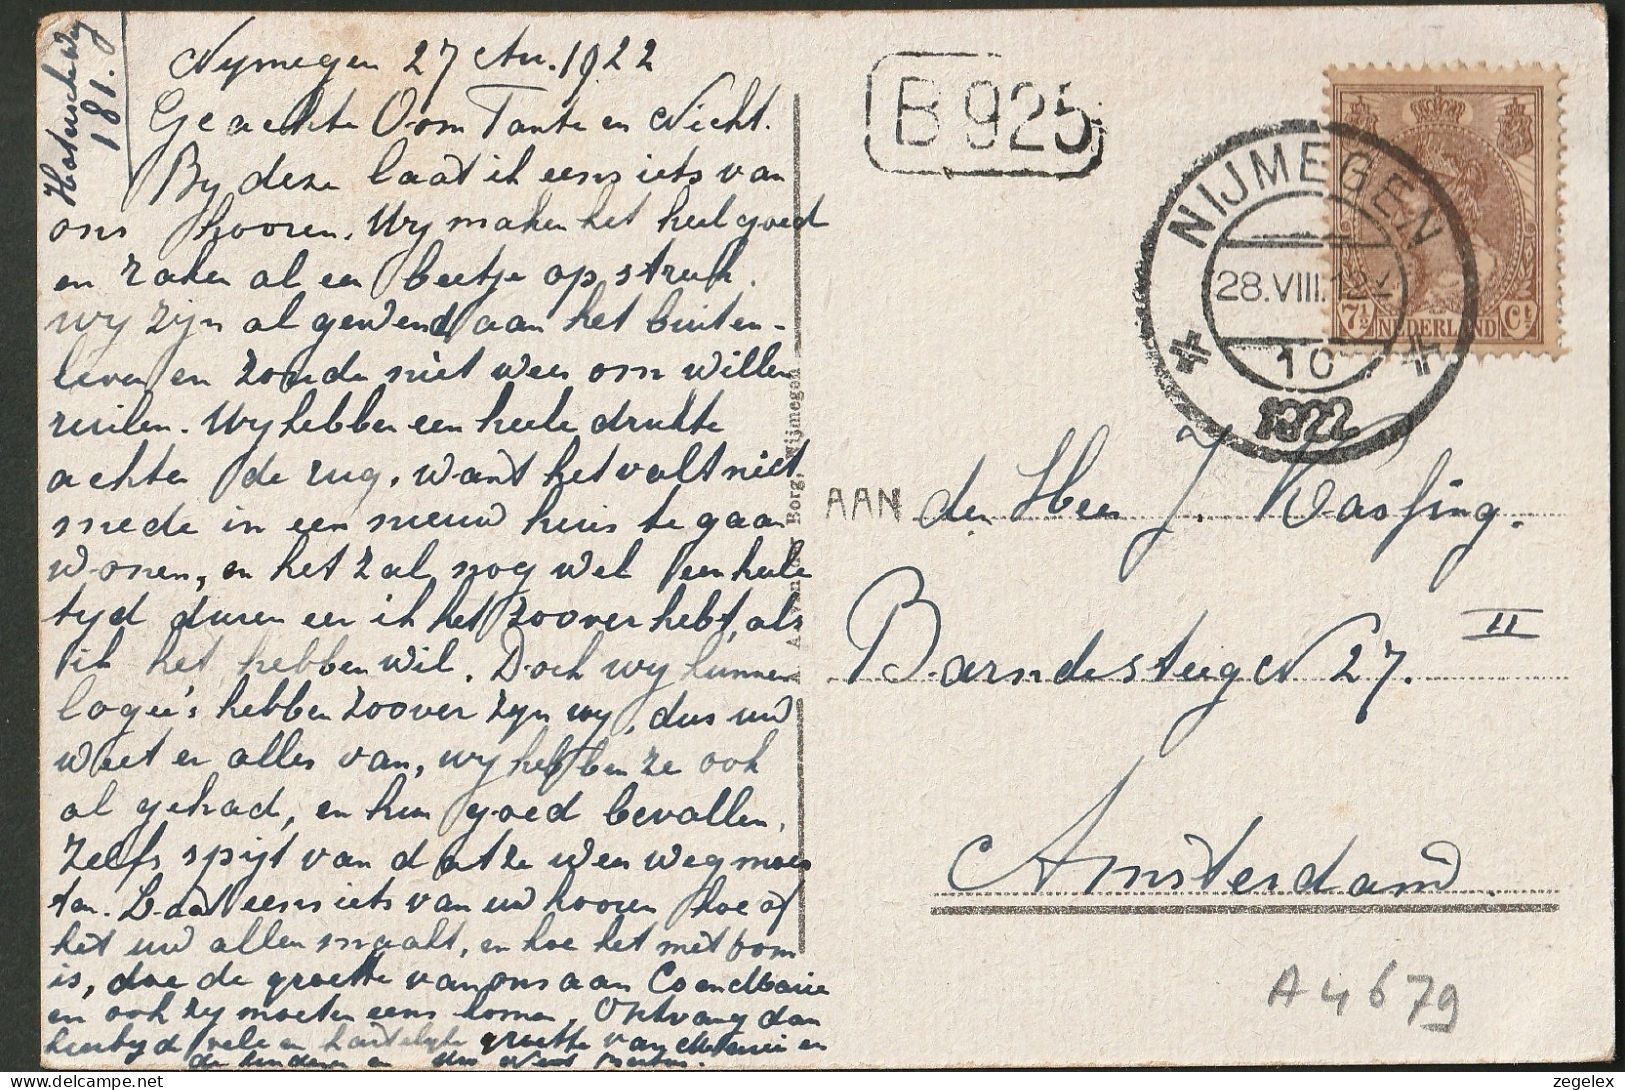 Hatersche Weg
181.
Nymegen 27 Au. 1922
Geachte Oom Tante en Nicht.
By deze laat ik eens iets van
ons hooren. Wy maken het heel goed
en raken al een beetje op streek.
wy zyn al gewend aan het buiten-
leven en zoude niet weer om willen
ruilen. Wy hebben een heele drukte
achter de rug, want het valt niet
mede in een nieuw huis te gaan
wonen, en het zal nog wel een heele
tyd duren eer ik het zoover hebt, als
ik het hebben wil. Doch wy kunnen
logée's hebben zoover zyn wy, dus uw
weet er alles van, wy hebben ze ook
al gehad, en hun goed bevallen,
Zelfs spyt van dat ze weer weg moes
ten. Laat eens iets van uw hooren hoe of
het uw allen maakt, en hoe het met oom
is, doe de groette van ons aan Co en Marie
en ook zy moeten eens komen, Ontvang dan
hierby de vele en hartelyke groette van Marie en
de kinderen en
A. van der Borg, Nijmegen
B 925
NIJMEGEN
28.VIII.12
10
1922
7½ NEDERLAND Ct
AAN den Heer J. Wassing.
Barndesteeg N 27. II
Amsterdam.
A4679
zegelex